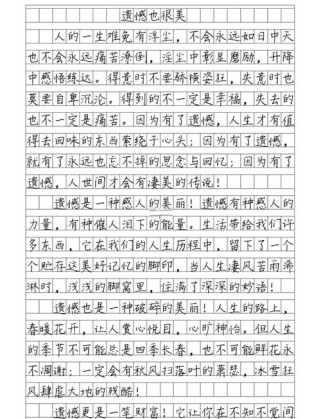 遗憾也很美
人的一生难免有浮尘，不会永远如日中天
也不会永远痛苦潦倒，浮尘中彰显磨励，升降
中感悟练达。得意时不要骄横姿狂，失意时也
莫要自卑沉沦。得到的不一定是幸福，失去的
也不一定是痛苦。因为有了遗憾，人生才有值
得去回味的东西萦绕于心头；因为有了遗憾，
就有了永远也忘不掉的思念与回忆；因为有了
遗憾，人世间才会有凄美的传说！
遗憾是一种感人的美丽！遗憾有种感人的
力量，有种催人泪下的能量。生活带给我们许
多东西，它在我们的人生历程中，留下了一个
个贮存这美好记忆的脚印，当人生凄风苦雨滂
淋时，浅浅的脚窝里，住满了深深的妙语！
遗憾也是一种破碎的美丽！人生的路上，
春暖花开，让人赏心悦目，心旷神怡。但人生
的季节不可能总是四季长春，也不可能鲜花永
不凋谢；一定会有秋风扫落叶的萧瑟，冰雪狂
风肆虐大地的残酷！
遗憾更是一笔财富！它让你在不知不觉间